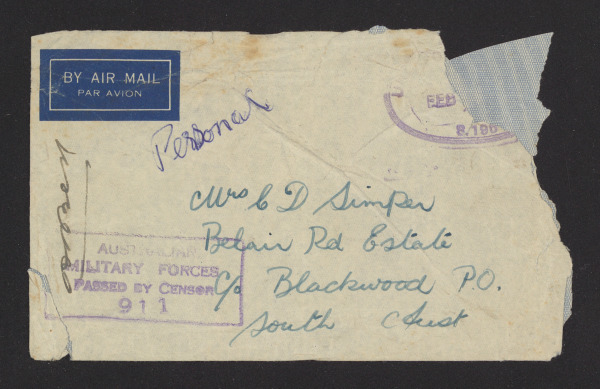 BY AIR MAIL
PAR AVION
Personal
FEB
8.196
Mrs C D Simper
Belair Rd Estate
C/o Blackwood P.O.
South Aust
AUSTRALIAN
MILITARY FORCES
PASSED BY CENSOR
911